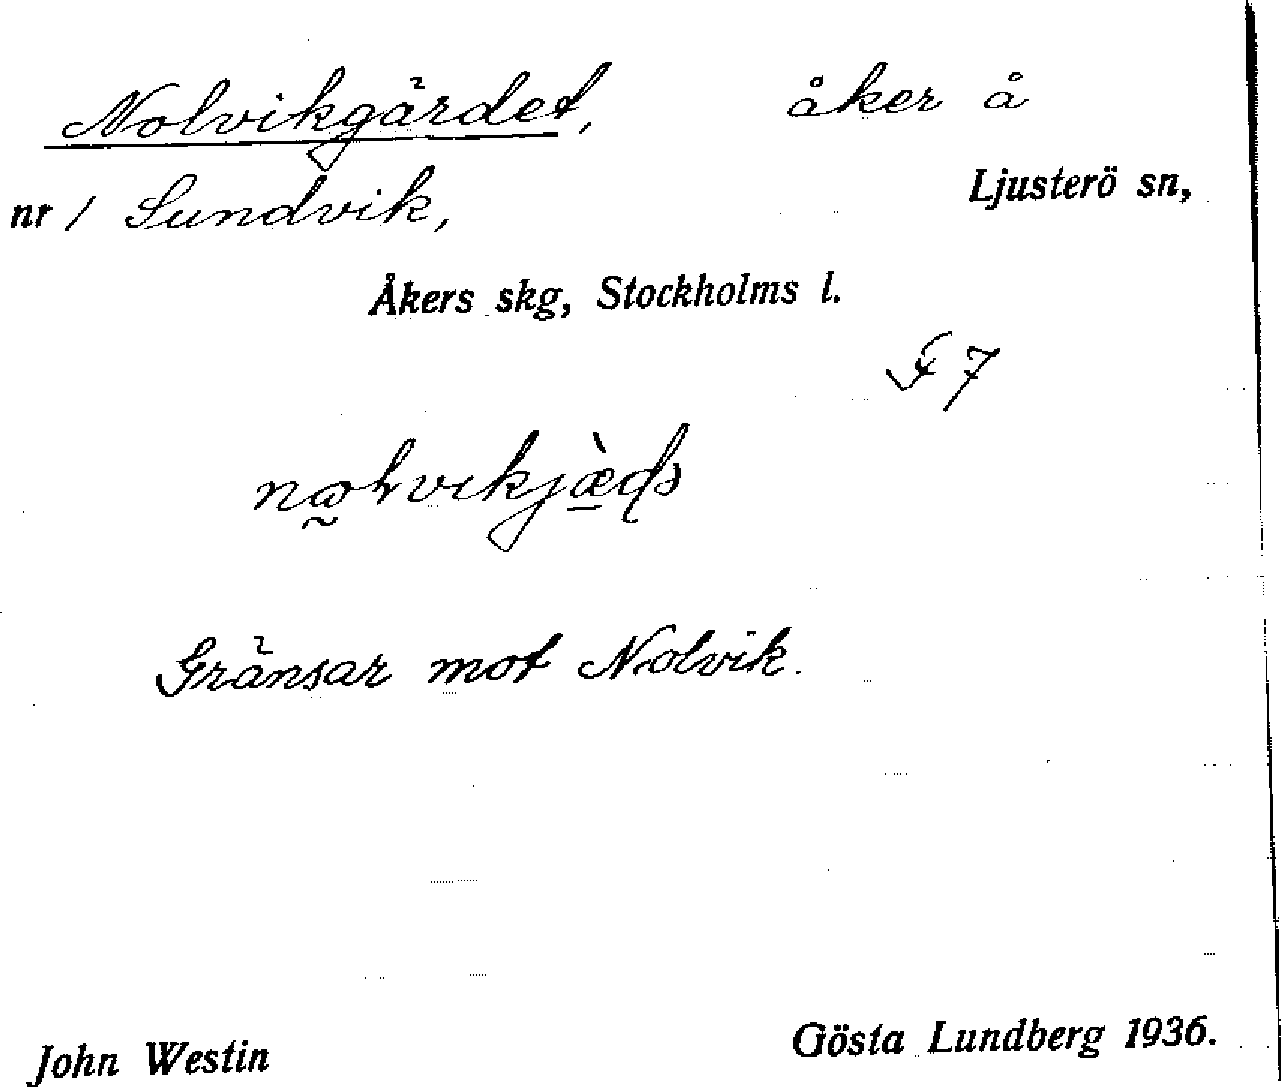 Nolvikgärdet, åker å
nr 1 Sundvik, Ljusterö sn,
Åkers skg, Stockholms l.
F 7
Gränsar mot Nolvik.
John Westin Gösta Lundberg 1936.